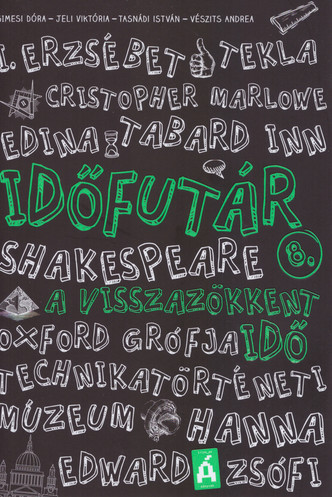 GIMESI DÓRA – JELI VIKTÓRIA – TASNÁDI ISTVÁN – VÉSZITS ANDREA
I. ERZSÉBET TEKLA
CRISTOPHER MARLOWE
EDINA TABARD INN
IDŐFUTÁR
SHAKESPEARE 8.
A VISSZAZÖKKENT
OXFORD GRÓFJA IDŐ
TECHNIKATÖRTÉNETI
MÚZEUM HANNA
EDWARD Á ZSÓFI